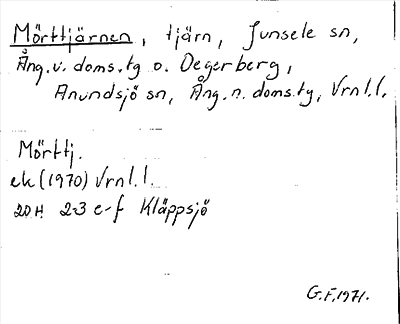 Mörttjärnen, tjärn, Junsele sn,
Ång.v. doms.tg o. Degerberg,
Anundsjö sn, Ång.n. doms.tg, Vrnl.l.
Mörttj.
ek (1970) Vrnl.l.
20H 2-3 e-f Kläppsjö
G.F. 1971.